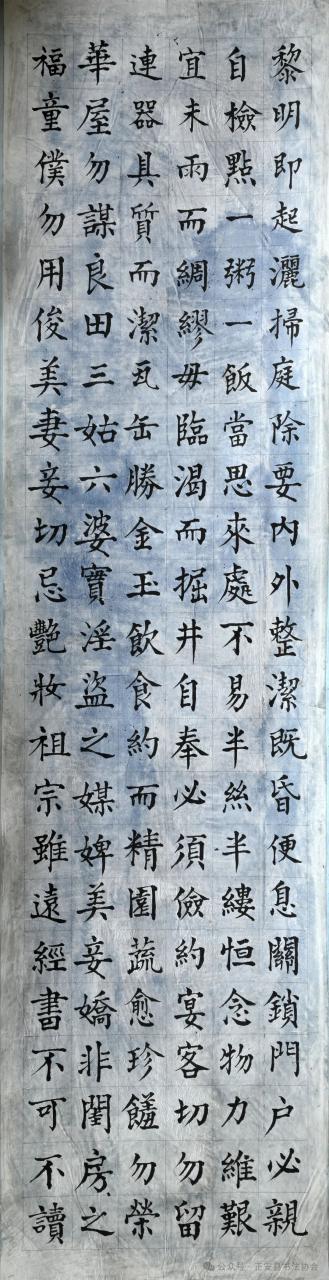 黎明即起灑掃庭除要内外整潔既昏便息關鎖門户必親
自檢點一粥一飯當思來處不易半絲半縷恒念物力維艱
宜未雨而綢繆毋臨渴而掘井自奉必須儉約宴客切勿留
連器具質而潔瓦缶勝金玉飲食約而精園蔬愈珍饈勿榮
華屋勿謀良田三姑六婆實淫盜之媒婢美妾嬌非閨房之
福童僕勿用俊美妻妾切忌艷妝祖宗雖遠經書不可不讀
公众号·正安县书法协会